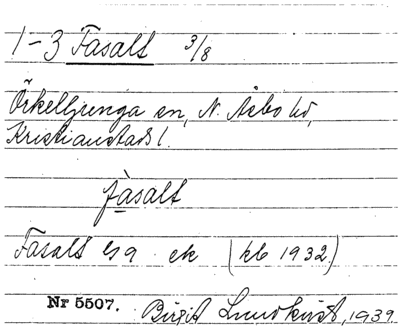 1-3 Fasalt 3/8
Örkelljunga sn, N. Åsbo hd,
Kristianstads l.
fàsalt
Fasalt by ek (kb 1932.)
Nr 5507. Birgit Lundkvist, 1939.